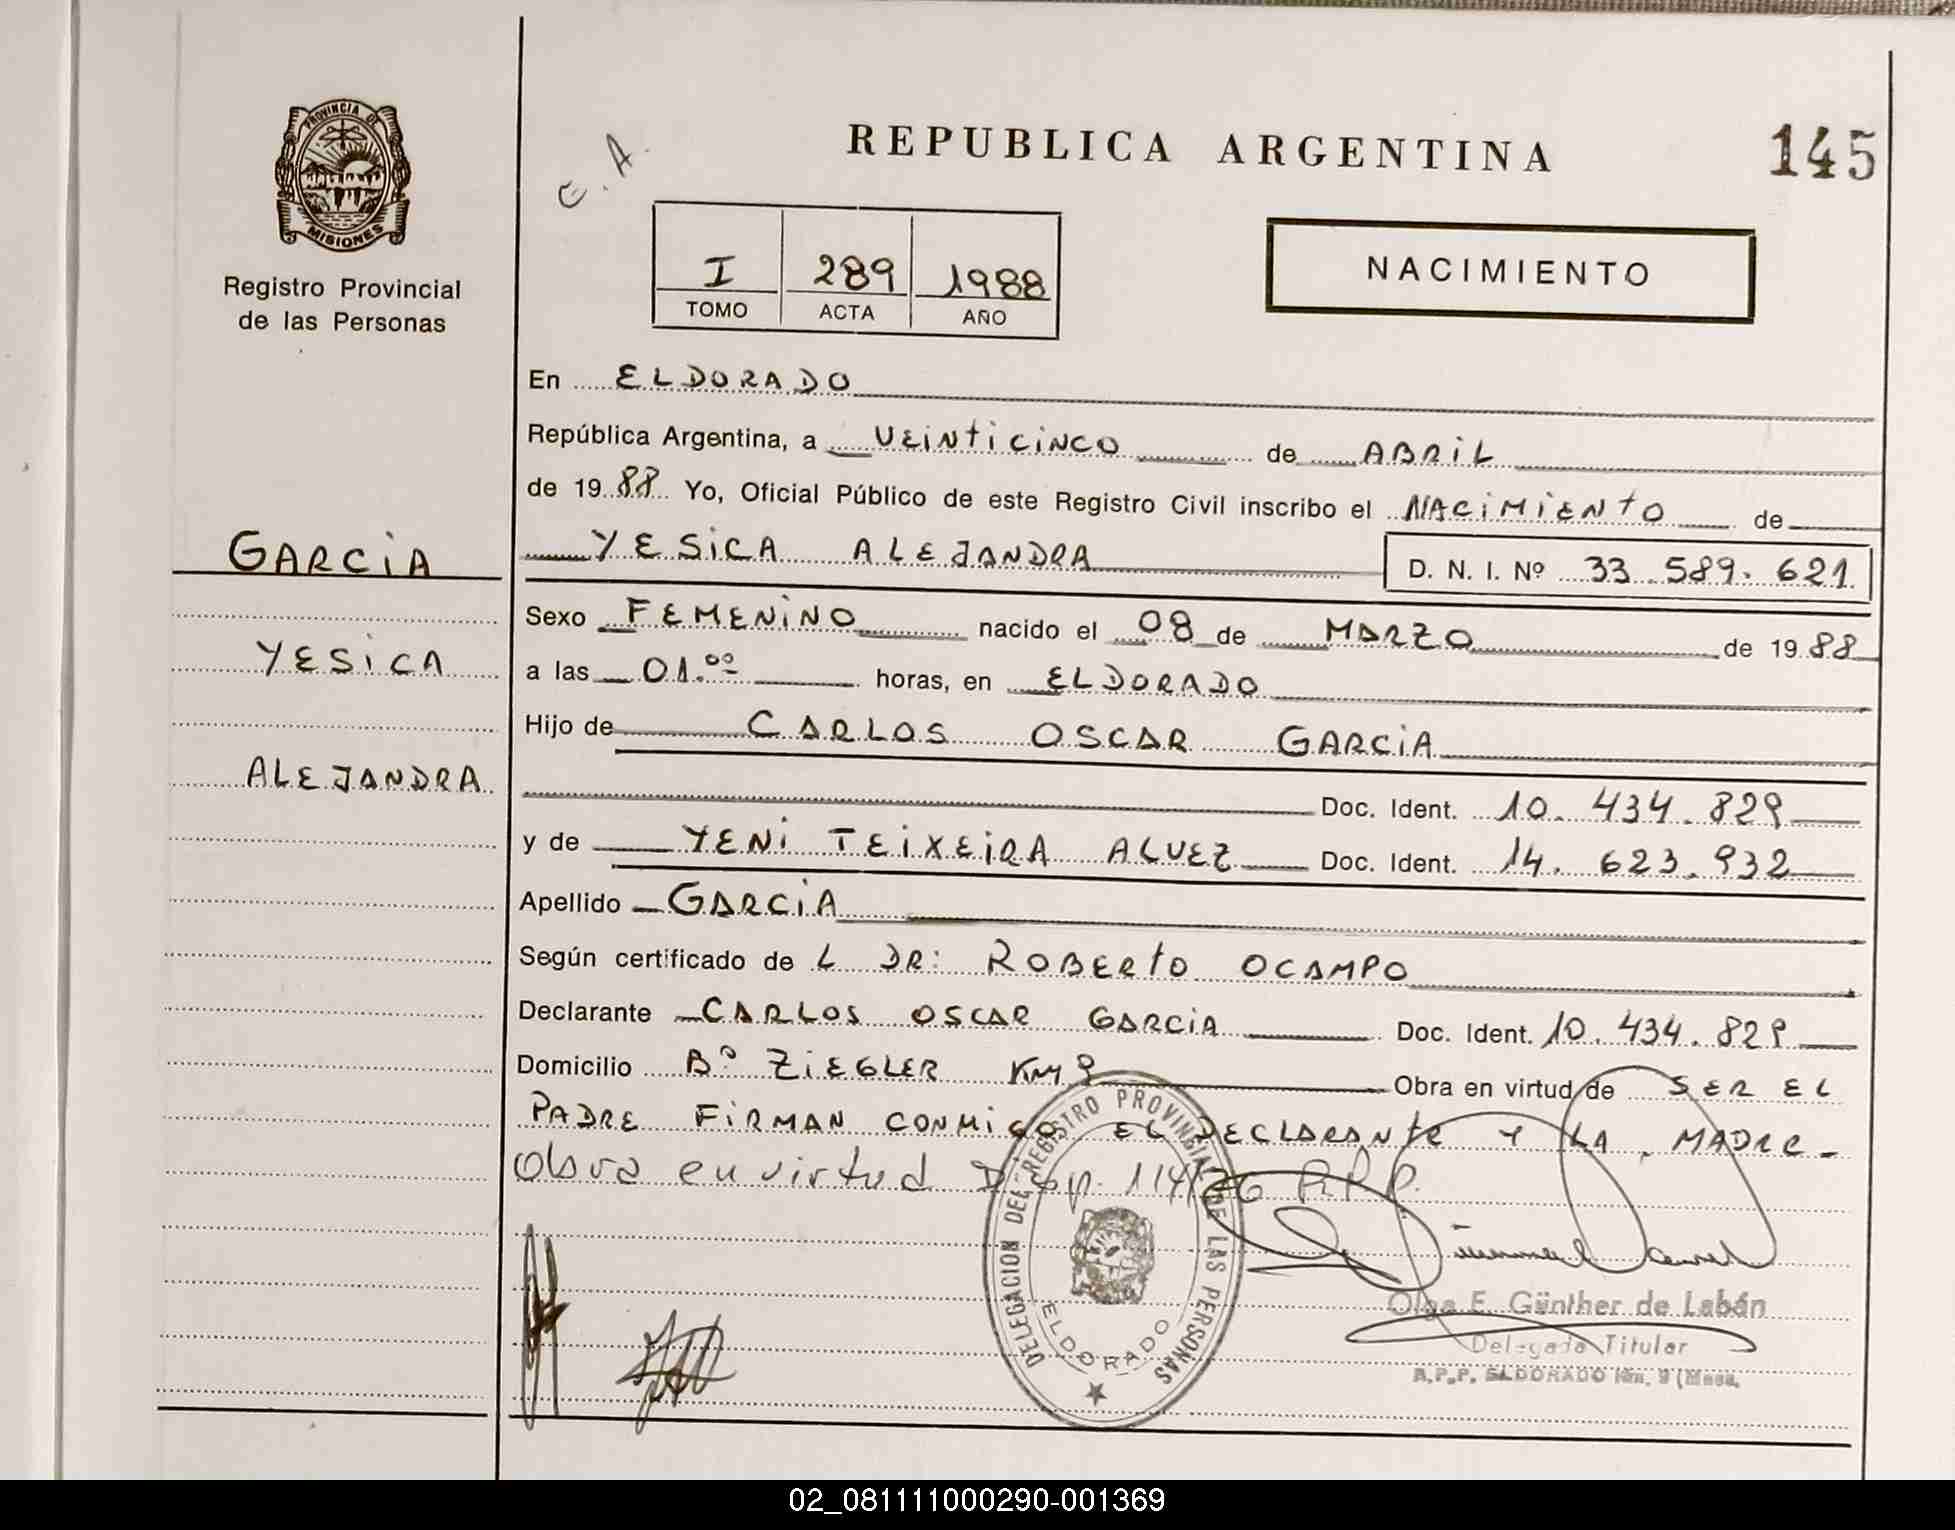 PROVINCIA DE
MISIONES
Registro Provincial
de las Personas
GARCIA
YESICA
ALEJANDRA
E. A.
REPUBLICA ARGENTINA
145
I 289 1988
TOMO ACTA AÑO
NACIMIENTO
En ELDORADO
República Argentina, a VEINTICINCO de ABRIL
de 1988 Yo, Oficial Público de este Registro Civil inscribo el NACIMIENTO de
YESICA ALEJANDRA D. N. I. Nº 33.589.621
Sexo FEMENINO nacido el 08 de MARZO de 1988
a las 01.00 horas, en ELDORADO
Hijo de CARLOS OSCAR GARCIA
Doc. Ident. 10.434.829
y de YENI TEIXEIRA ALVEZ Doc. Ident. 14.623.932
Apellido GARCIA
Según certificado de L DR: ROBERTO OCAMPO
Declarante CARLOS OSCAR GARCIA Doc. Ident. 10.434.829
Domicilio Bº ZIEGLER KM 9 Obra en virtud de SER EL
PADRE FIRMAN CONMIGO EL DECLARANTE Y LA MADRE-
Obra en virtud Disp. 114/76 R.P.P.
DELEGACION DEL REGISTRO PROVINCIAL DE LAS PERSONAS
ELDORADO
Olga E. Günther de Labán
Delegada Titular
R.P.P. ELDORADO Km. 9 (Mnes.
02_081111000290-001369